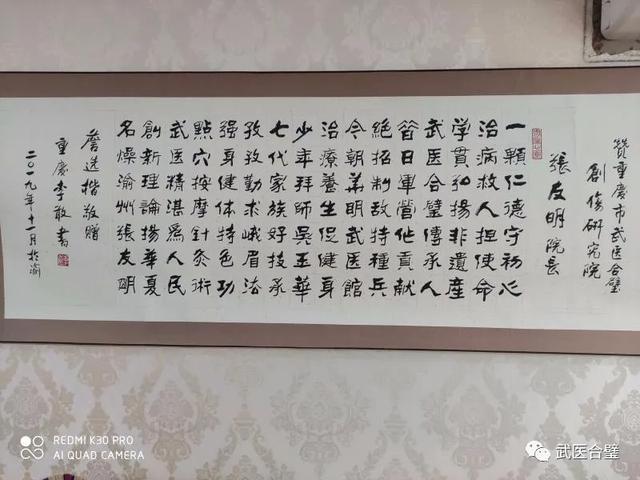 贊重慶市武医合璧
創傷研究院
張友明院長
一顆仁德守初心
治病救人担使命
学貫弘揚非遺產
武医合璧傳承人
昔日軍營他貢献
絕招制敌特種兵
今朝華明武医館
治療養生促健身
少年拜師吳玉華
七代家族好技承
孜孜勤求峨眉法
强身健体特色功
點穴按摩針灸術
武医精湛為人民
創新理論揚華夏
名燥渝州張友明
詹选楷敬贈
重慶李敢書
二0一九年十一月於渝
REDMI K30 PRO
AI QUAD CAMERA
武医合璧